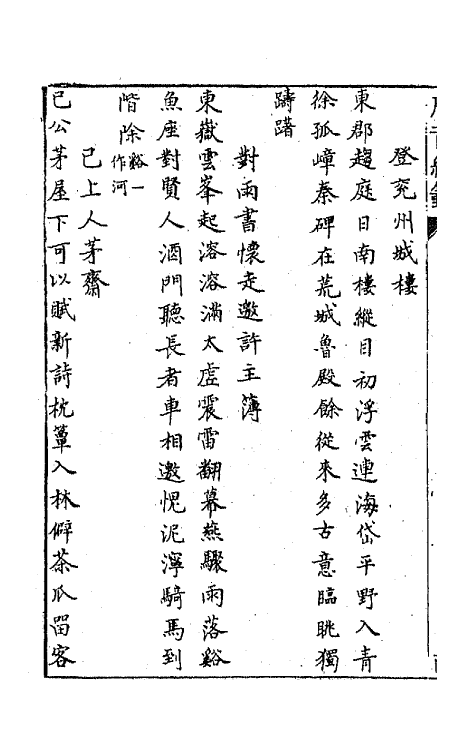 登兗州城樓
東郡趨庭日南樓縱目初浮雲連海岱平野入青
徐孤嶂秦碑在荒城魯殿餘從來多古意臨眺獨
躊躇
對雨書懷走邀許主簿
東嶽雲峯起溶溶滿太虛震雷翻幕燕驟雨落谿
魚座對賢人酒門聽長者車相邀愧泥濘騎馬到
階除谿一作河
已上人茅齋
已公茅屋下可以賦新詩枕簟入林僻茶瓜留客